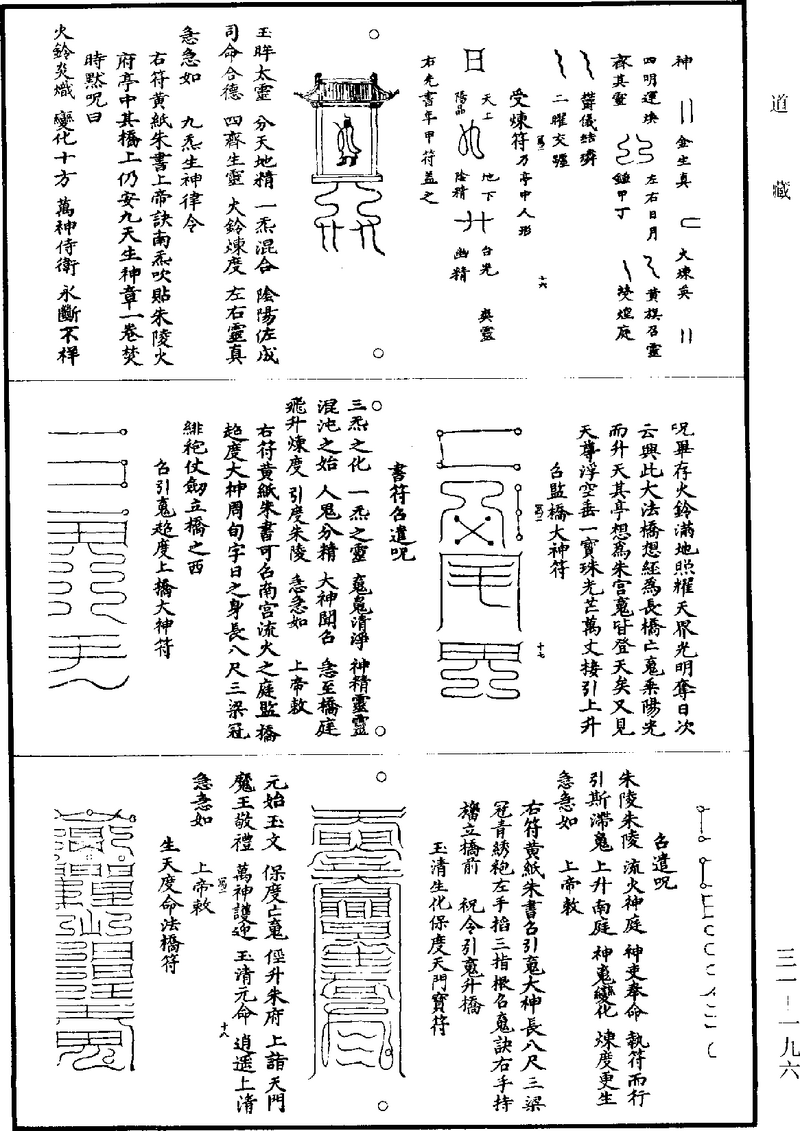 道藏
神　金生真　火煉英
四明運煥　左右日月　黃旗召靈
齊其靈　錘甲丁　熒煌庭
鬱儀結璘
二曜交躔
受煉符乃亭中人形
日　天上　地下　台光　爽靈
陽晶　陰精　幽精
右先書本甲符蓋之
十六
玉眸太靈　分天地精　一炁混合　陰陽佐成
司命合德　四齊生靈　火鈴煉度　左右靈真
急急如　九炁生神律令
右符黃紙朱書上帝訣南炁吹貼朱陵火
府亭中其橋上仍安九天生神章一卷焚
時默呪曰
火鈴炎熾　變化十方　萬神侍衛　永斷不祥
呪畢存火鈴滿地照耀天界光明奪日次
云與此大法橋想經為長橋亡魂乘陽光
而升天其亭想為朱宮魂皆登天矣又見
天尊浮空垂一寶珠光芒萬丈接引上升
召監橋大神符
十七
書符召遣呪
三炁之化　一炁之靈　魂魄清淨　神精靈靈
混沌之始　人鬼分精　大神聞召　急至橋庭
飛升煉度　引度朱陵　急急如　上帝敕
右符黃紙朱書可召南宮流火之庭監橋
超度大神周旬字日之身長八尺三梁冠
緋袍仗劒立橋之西
召引魂超度上橋大神符
召遣呪
朱陵朱陵　流火神庭　神吏奉命　執符而行
引斯滯魂　上升南庭　神魂變化　煉度更生
急急如　上帝敕
右符黃紙朱書召引魂大神長八尺三梁
冠青綉袍左手掐三指根召魂訣右手持
旛立橋前　祝令引魂升橋
玉清生化保度天門寶符
元始玉文　保度亡魂　徑升朱府　上詣天門
魔王敬禮　萬神護迎　玉清元命　逍遥上清
急急如　上帝敕
十八
生天度命法橋符
三一－一九六